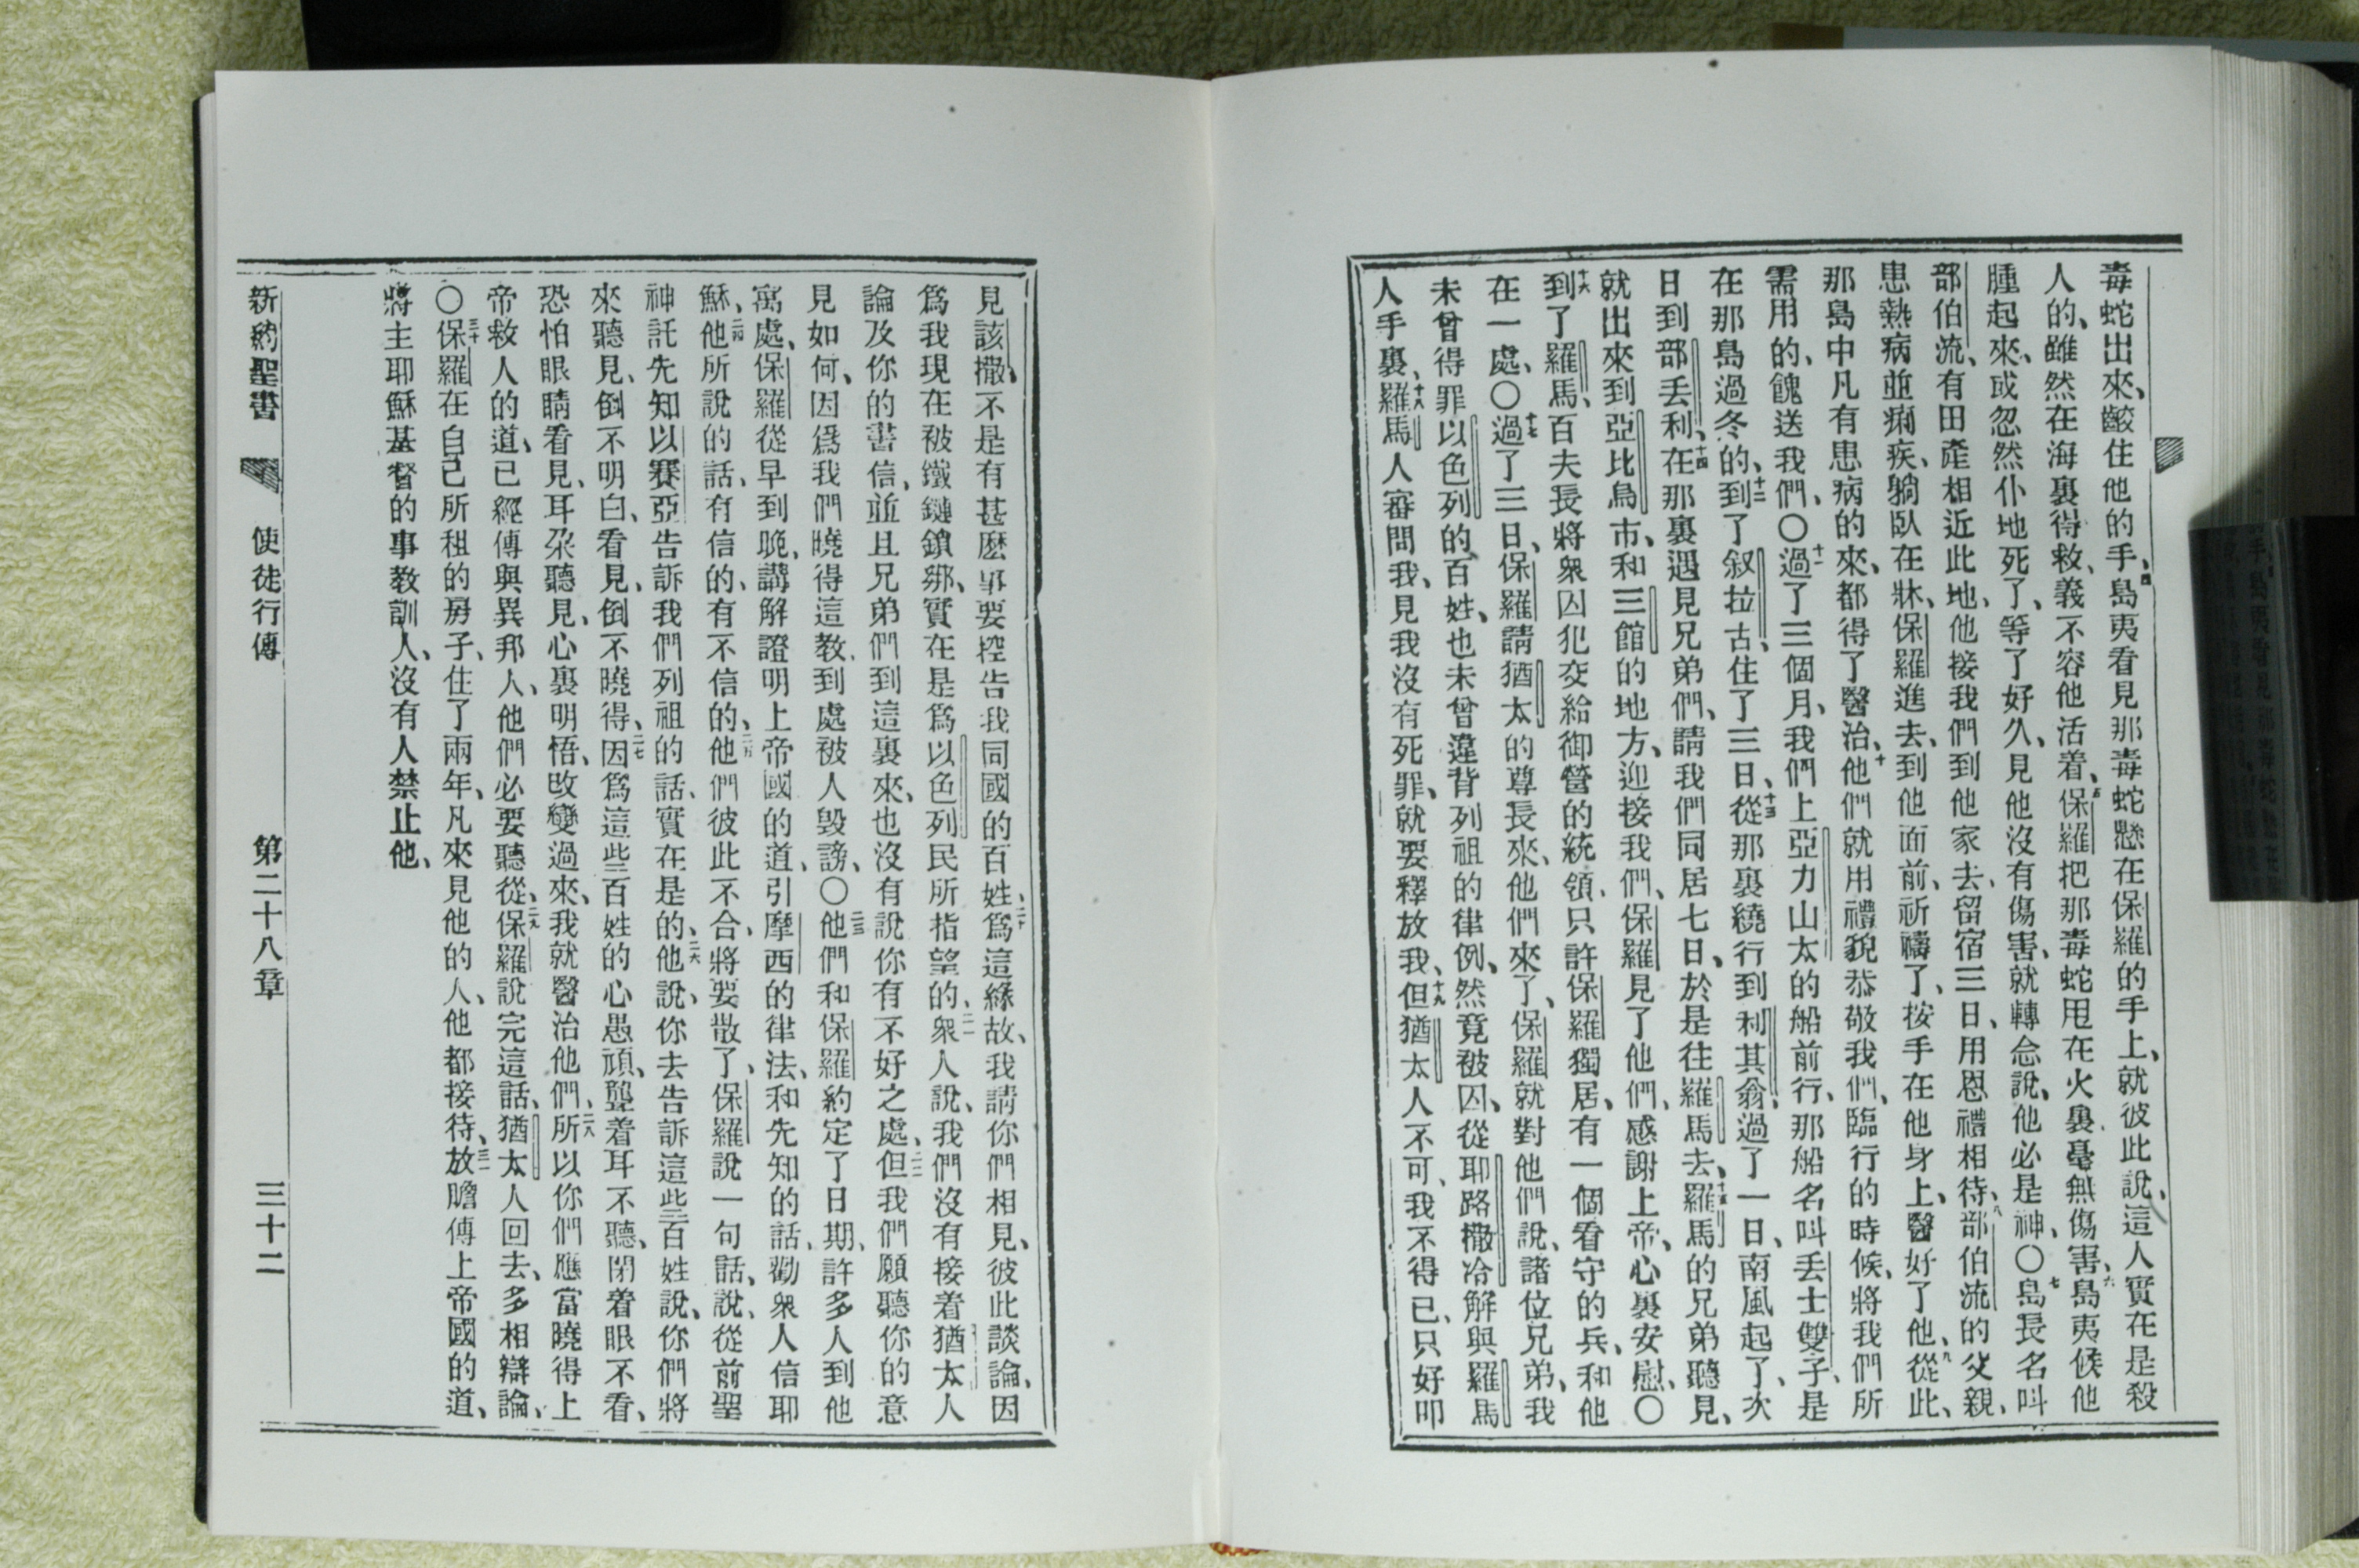 毒蛇出來、齩住他的手、四島夷看見那毒蛇懸在保羅的手上、就彼此說、這人實在是殺
人的、雖然在海裏得救、義不容他活着、五保羅把那毒蛇甩在火裏、毫無傷害、六島夷候他
腫起來、或忽然仆地死了、等了好久、見他沒有傷害、就轉念說、他必是神、〇七島長名叫
部伯流、有田產相近此地、他接我們到他家去、留宿三日、用恩禮相待、八部伯流的父親、
患熱病並痢疾、躺臥在牀、保羅進去、到他面前、祈禱了、按手在他身上、醫好了他、九從此、
那島中凡有患病的來、都得了醫治、十他們就用禮貌恭敬我們、臨行的時候、將我們所
需用的、餽送我們、〇十一過了三個月、我們上亞力山太的船前行、那船名叫丟士雙子、是
在那島過冬的、十二到了叙拉古、住了三日、十三從那裏繞行到利其翁、過了一日、南風起了、次
日到部丟利、十四在那裏遇見兄弟們、請我們同居七日、於是往羅馬去、十五羅馬的兄弟聽見、
就出來到亞比烏市、和三館的地方、迎接我們、保羅見了他們、感謝上帝、心裏安慰、〇
十六到了羅馬、百夫長將衆囚犯交給御營的統領、只許保羅獨居、有一個看守的兵、和他
在一處、〇十七過了三日、保羅請猶太的尊長來、他們來了、保羅就對他們說、諸位兄弟、我
未曾得罪以色列的百姓、也未曾違背列祖的律例、然竟被囚、從耶路撒冷解與羅馬
人手裏、十八羅馬人審問我、見我沒有死罪、就要釋放我、十九但猶太人不可、我不得已、只好叩
見該撒、不是有甚麽事要控告我同國的百姓、二十爲這緣故、我請你們相見、彼此談論、因
爲我現在被鐵鏈鎖綁、實在是爲以色列民所指望的、二一衆人說、我們沒有接着猶太人
論及你的書信、並且兄弟們到這裏來、也沒有說你有不好之處、二二但我們願聽你的意
見如何、因爲我們曉得這教、到處被人毀謗、〇二三他們和保羅約定了日期、許多人到他
寓處、保羅從早到晚、講解證明上帝國的道、引摩西的律法、和先知的話、勸衆人信耶
穌、二四他所說的話、有信的、有不信的、二五他們彼此不合、將要散了、保羅說一句話、說、從前聖
神託先知以賽亞告訴我們列祖的話、實在是的、二六他說、你去告訴這些百姓說、你們將
來聽見、倒不明白、看見、倒不曉得、二七因爲這些百姓的心愚頑、聾着耳不聽、閉着眼不看、
恐怕眼睛看見、耳朶聽見、心裏明悟、改變過來、我就醫治他們、二八所以你們應當曉得上
帝救人的道、已經傳與異邦人、他們必要聽從、二九保羅說完這話、猶太人回去、多相辯論、
〇三十保羅在自己所租的房子、住了兩年、凡來見他的人、他都接待、三一放膽傳上帝國的道、
將主耶穌基督的事教訓人、沒有人禁止他、
新約聖書 使徒行傳 第二十八章 三十二